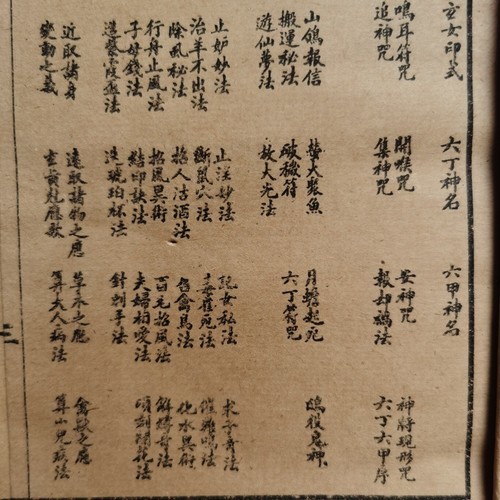 玄女印式 六丁神名 六甲神名
鳴耳符咒 開喉咒 安神咒 神將現形咒
追神咒 集神咒 報却法 六丁六甲序
山鴿報信 螢火聚魚 月蟾起死
搬運秘法 破穢符 六丁符咒 役鬼神
遊仙夢法 放大光法
止妒妙法 止淫妙法 玩女私法 求子奇法
治羊不出法 斷鼠穴法 法 催雞鳴法
除風秘法 招人沽酒法 召禽鳥法 化水異術
行舟止風法 招風異術 百元招風法 解縛奇法
子母錢法 結印訣法 夫婦相愛法 頃刻開花法
造法 造琥珀杯法 針刺手法
近取諸身 遠取諸物之應 草木之應 禽獸之應
變動之義 玄黃克應歌 算大人病法 算小兒疾法
二